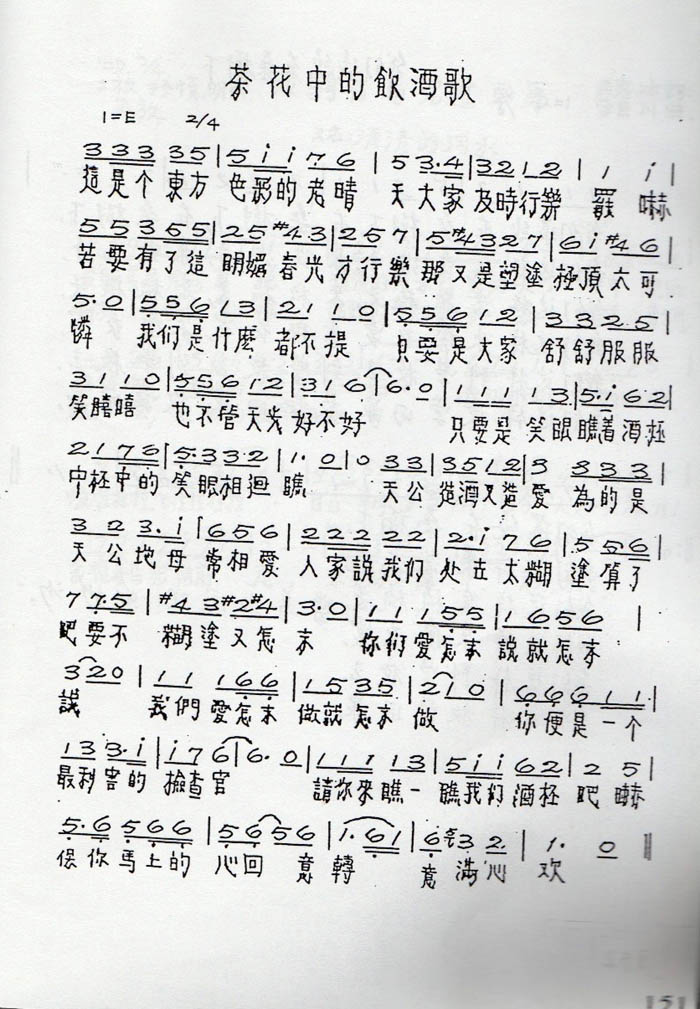 茶花中的飲酒歌
1=E 2/4
3 3 3 3 5 | 5 i i 7 6 | 5 3·4 | 3 2 1 2 | 1 i |
這是个東方 色彩的老晴 天大家 及時行樂 羅 嚇
5 5 3 5 5 | 2 5 #4 3 | 2 5 7 | 5 #4 3 2 7 | 6 i #4 6 |
若要有了這 明媚春光才行樂 那又是塑塗極頂太可
5·0 | 5 5 6 1 3 | 2 1 1 0 | 5 5 6 1 2 | 3 3 2 5 |
憐 我们是什麽 都不提 只要是大家 舒舒服服
3 1 1 0 | 5 5 6 1 2 | 3 1 6 | 6·0 | 1 1 1 1 3 | 5·i 6 2 |
笑嘻嘻 也不管天光好不好 只要是笑眼瞧着酒杯
2 1 7 6 | 5·3 3 2 | 1·0 | 0 3 3 | 3 5 1 2 | 3 3 3 3 |
中杯中的笑眼相迴瞧 天公造酒又造愛 為的是
3 2 3·i | 6 5 6 | 2 2 2 2 2 | 2·i 7 6 | 5 5 6 |
天公地母常相愛 人家說我们 处在太糊塗算了
7 7 5 | #4 3 #2 #4 | 3·0 | 1 1 1 5 5 | 1 6 5 6 |
吧要不 糊塗又怎末 你們愛怎末 說就怎末
3 2 0 | 1 1 1 6 6 | 1 5 3 5 | 2 1 0 | 6 6 6 1 1 |
說 我們愛怎末 做就怎末做 你便是一个
1 3 3·i | i 7 6 | 6·0 | 1 1 1 1 3 | 5 i i 6 2 | 2 5 |
最利害的 檢查官 請你來瞧一瞧我们酒杯 吧嚇
5·6 5 6 6 | 5 6 5 6 | 1·6 1 | 6 3 2 | 1· 0 ‖
保你馬上的 心回意轉 意滿心欢
151